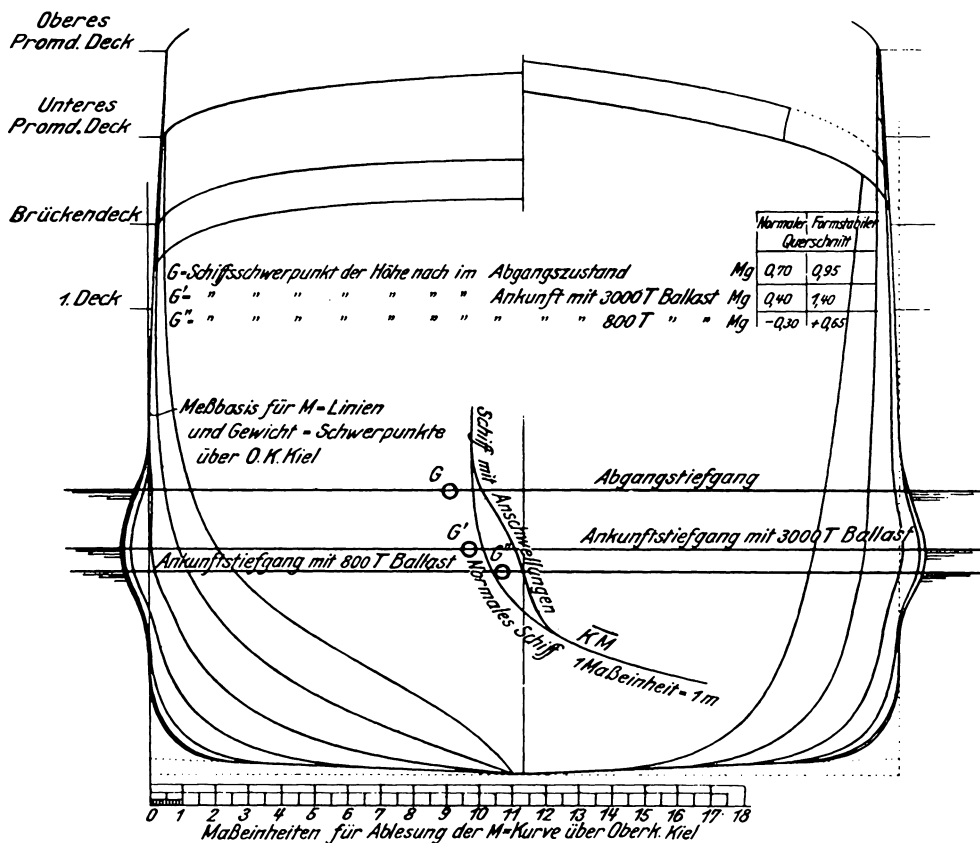 Oberes
Promd. Deck
Unteres
Promd. Deck
Brückendeck
1. Deck
Normaler Formstabiler
Querschnitt
G = Schiffsschwerpunkt der Höhe nach im Abgangszustand Mg 0,70 0,95
G' = " " " " " " " Ankunft mit 3000 T Ballast Mg 0,40 1,40
G" = " " " " " " " " " " 800 T " " Mg -0,30 +0,65
Meßbasis für M = Linien
und Gewicht = Schwerpunkte
über O.K. Kiel
Schiff mit Anschwellungen
G
Abgangstiefgang
G'
Ankunftstiefgang mit 3000 T Ballast
G"
Ankunftstiefgang mit 800 T Ballast
Normales Schiff
KM
1 Maßeinheit = 1 m
0 1 2 3 4 5 6 7 8 9 10 11 12 13 14 15 16 17 18
Maßeinheiten für Ablesung der M=Kurve über Oberk. Kiel